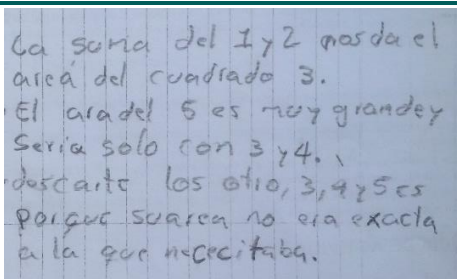 La suma del 1 y 2 nos da el
area del cuadrado 3.
El ara del 5 es muy grande y
Seria solo con 3 y 4.
descarte los otro, 3, 4 y 5 es
porque su area no era exacta
a la que nececitaba.